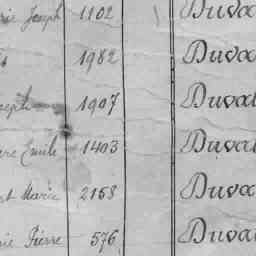 Joseph 1102 Duva
1982 Duva
1907 Duval
Emile 1403 Duval
Marie 2158 Duva
Pierre 576 Duval